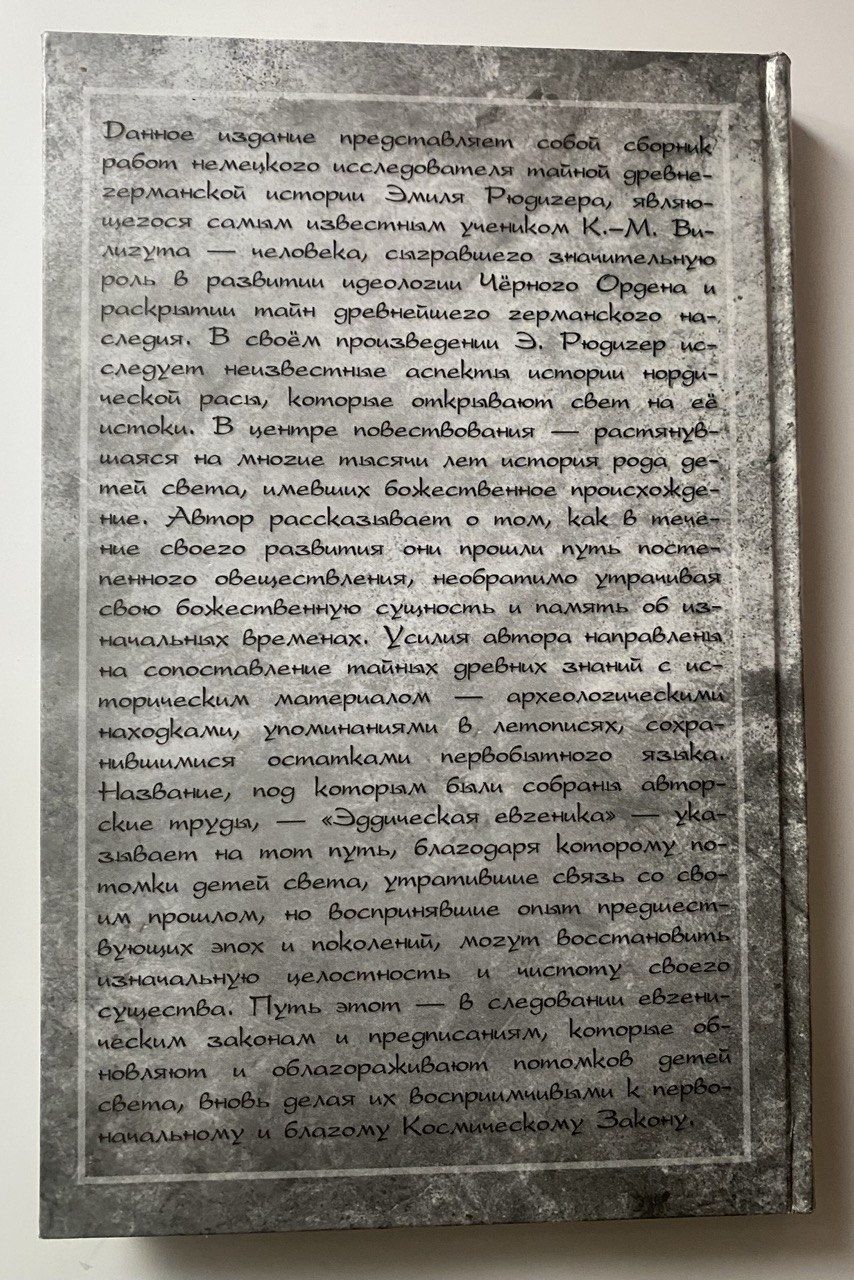 Данное издание представляет собой сборник
работ немецкого исследователя тайной древне-
германской истории Эмиля Рюдигера, являю-
щегося самым известным учеником К.–М. Ви-
лигута — человека, сыгравшего значительную
роль в развитии идеологии Чёрного Ордена и
раскрытии тайн древнейшего германского на-
следия. В своём произведении Э. Рюдигер ис-
следует неизвестные аспекты истории норди-
ческой расы, которые открывают свет на её
истоки. В центре повествования — растянув-
шаяся на многие тысячи лет история рода де-
тей света, имевших божественное происхожде-
ние. Автор рассказывает о том, как в тече-
ние своего развития они прошли путь посте-
пенного овеществления, необратимо утрачивая
свою божественную сущность и память об из-
начальных временах. Усилия автора направлены
на сопоставление тайных древних знаний с ис-
торическим материалом — археологическими
находками, упоминаниями в летописях, сохра-
нившимися остатками первобытного языка.
Название, под которым были собраны автор-
ские труды, — «Эддическая евгеника» — ука-
зывает на тот путь, благодаря которому по-
томки детей света, утратившие связь со сво-
им прошлом, но воспринявшие опыт предшест-
вующих эпох и поколений, могут восстановить
изначальную целостность и чистоту своего
существа. Путь этот — в следовании евгени-
ческим законам и предписаниям, которые об-
новляют и облагораживают потомков детей
света, вновь делая их восприимчивыми к перво-
начальному и благому Космическому Закону.